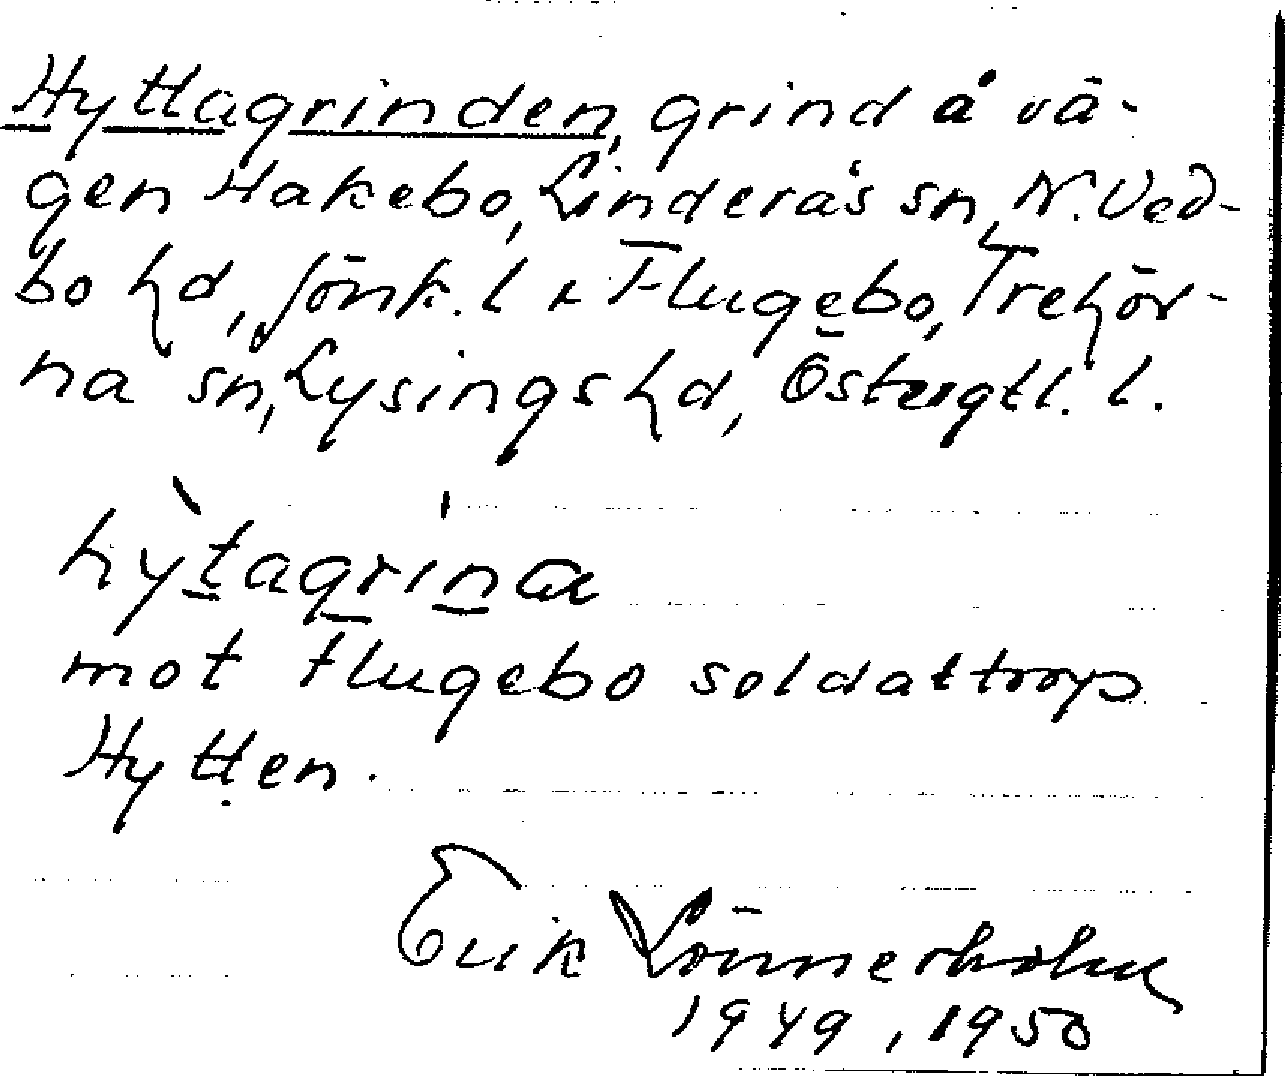 Hyttagrinden, grind å vä-
gen Hakebo, Linderås sn, N. Ved-
bo hd, Jönk. l x Flugebo, Trehör-
na sn, Lysings hd, Östergtl. l.
hỳtagrina
mot Flugebo soldattorp
Hytten.
Erik Lönnerholm
1949, 1950